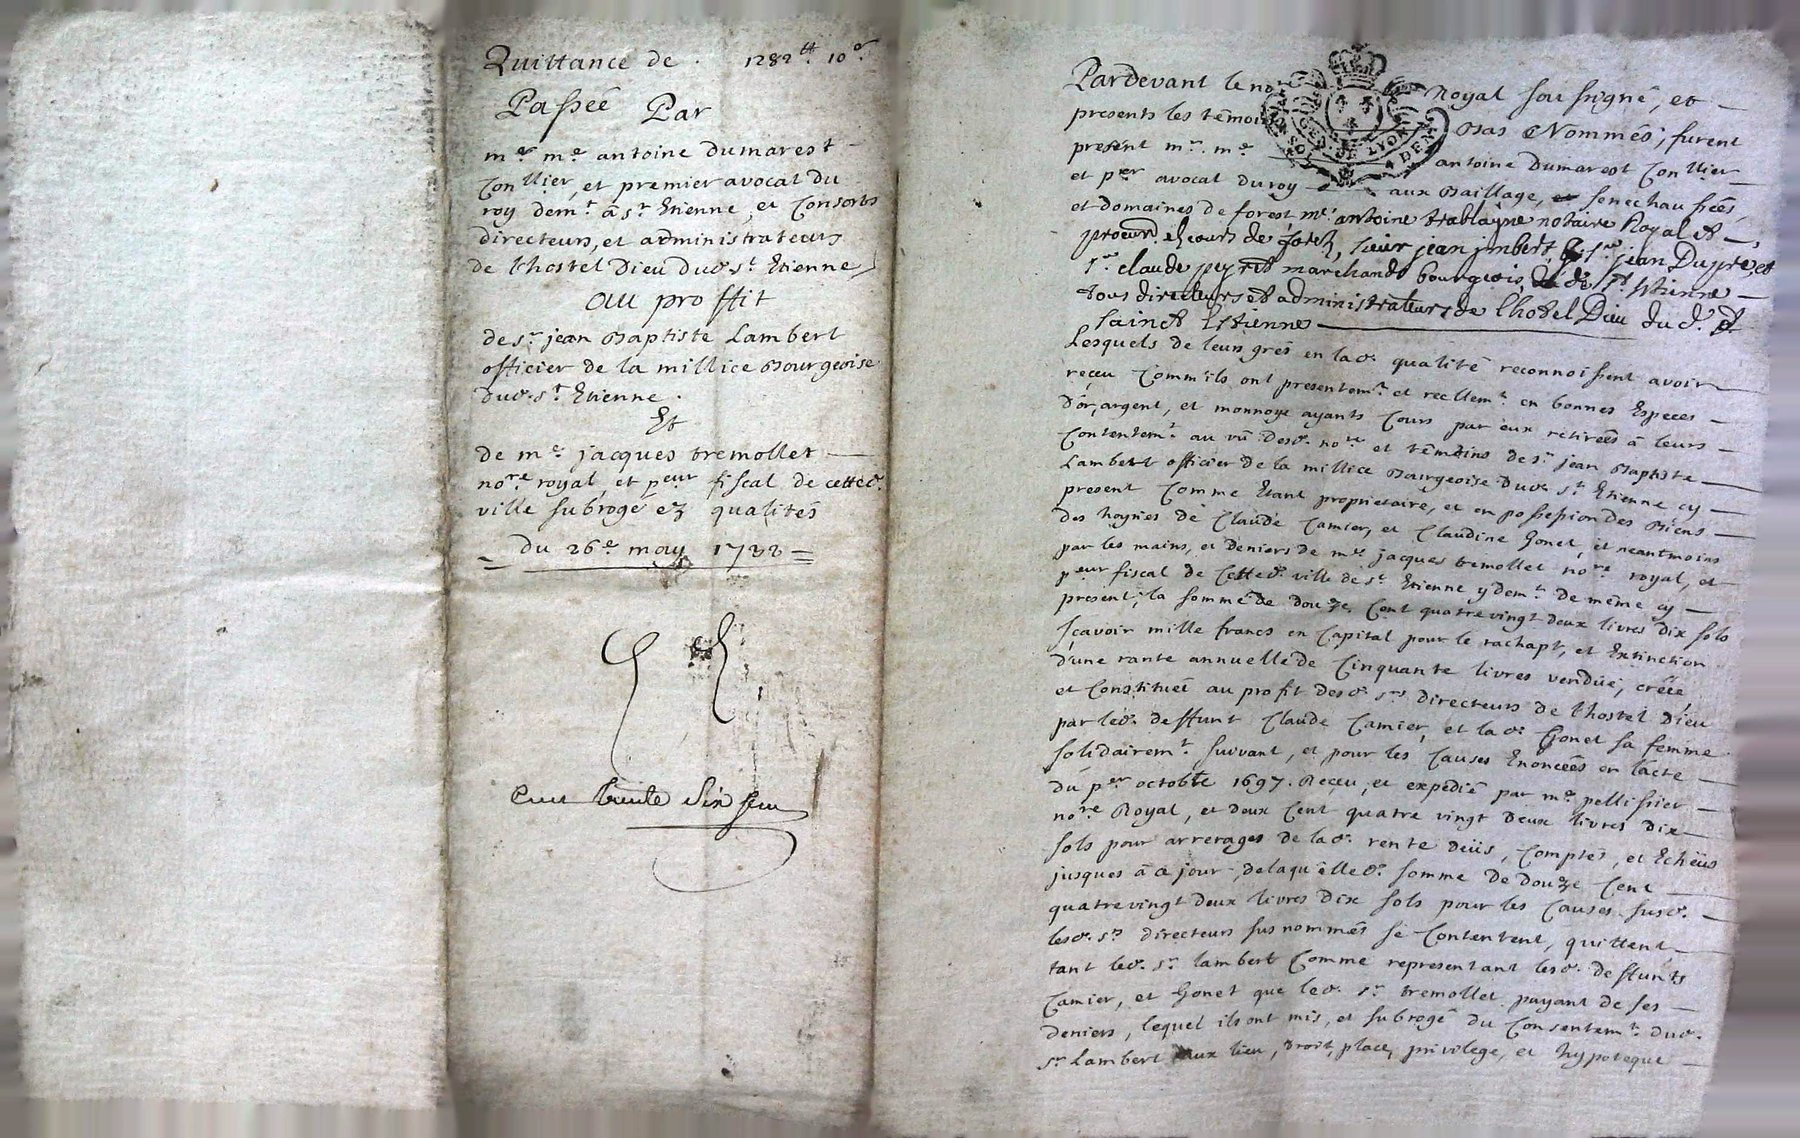 Quittance de . 1282tt. 10s.
Passée Par
mr. me. antoine dumarest
Conllier, et premier avocat du
roy demt. a st. Etienne, et Consorts
directeurs, et administrateurs
de lhostel Dieu dud. st. Etienne
au proffit
de sr. jean Baptiste Lambert
officier de la millice Bourgeoise
dud. st. Etienne.
Et
de me. jacques tremollet
nore. royal, et peur fiscal de cette d.
ville subrogé ez qualités
du 26e. may 1722
Pardevant le nore. Royal sousigné, et
presents les témoins Bas Nommés, furent
present mr. me. antoine dumarest Conllier
et per avocat du roy aux Baillage, senechaussées,
et domaines de forest me. antoine trablayne notaire Royal et
procur. ez cours de forez, sieur jean jmbert, sr. jean Dupré et
sr. claude peyret marchands bourgeois de st. Etienne
tous directeurs et administrateurs de lhotel Dieu dud.
sainct Estienne
Lesquels de leurs grés en lad. qualité reconnoissent avoir
receu Comm'ils ont presentemt. et reellemt. en bonnes Especes
d'or, argent, et monnoye ayants Cours par eux retirées a leurs
Contentemt. au vû desd. nore. et témoins de sr. jean Baptiste
Lambert officier de la millice Bourgeoise dud. st. Etienne cy
present Comme Etant proprietaire, et en possession des Biens
des hoyries de Claude Camier, et Claudine Gonet, et neantmoins
par les mains, et deniers de me. jacques tremollet nore. royal, et
peur fiscal de Cette d. ville de st. Etienne y demt. de même cy
present, la somme de douze Cent quatre vingt deux livres dix sols
sçavoir mille francs en Capital pour le rachapt, et Extinction
d'une rante annuelle de Cinquante livres vendüe, créée
et Constituée au profit desd. srs. directeurs de lhostel Dieu
par led. deffunt Claude Camier, et lad. Gonet sa femme
solidairemt. suivant, et pour les Causes Enoncées en l'acte
du per octobre 1697. Receu, et expedié par me. pellissier
nore. Royal, et deux Cent quatre vingt deux livres dix
sols pour arrerages de lad. rente deüs, Comptés, et Echëus
jusques à ce jour, de laquelle d. somme de douze Cent
quatre vingt deux livres dix sols pour les Causes susd.
lesd. srs. directeurs susnommés se Contentent, quittent
tant led. sr. lambert Comme representant lesd. deffunts
Camier, et Gonet que led. sr. tremollet payant de ses
deniers, lequel ils ont mis, et subrogé du Consentemt. dud.
sr. Lambert aux lieu, droit, place, privilege, et hypoteque